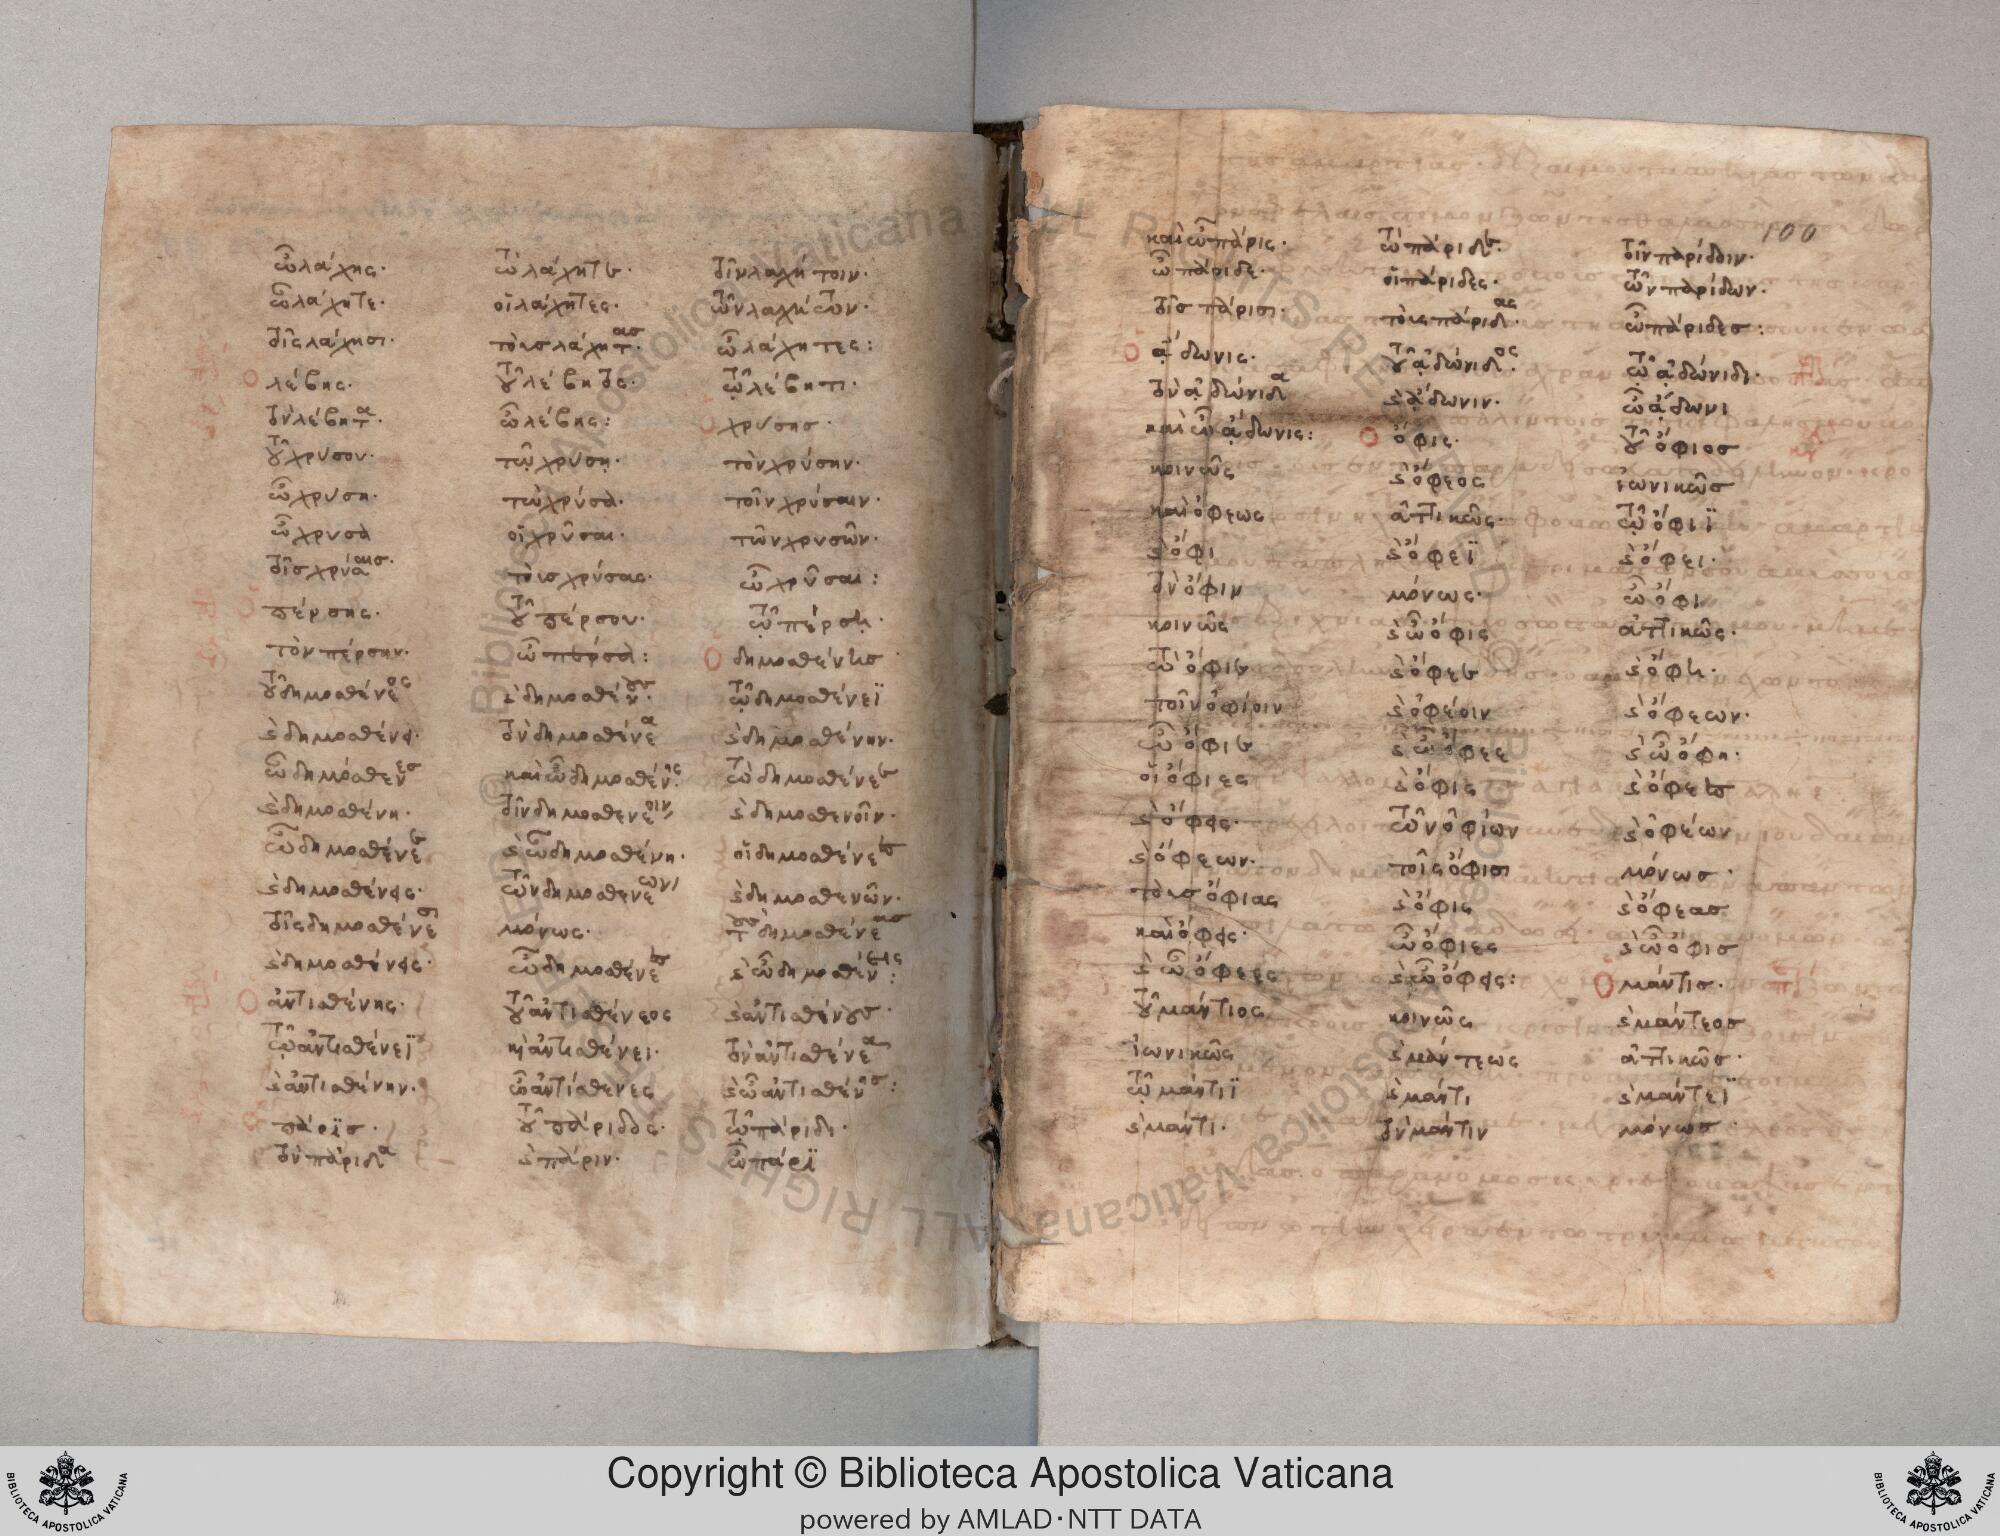 ὦ λάχης· τὼ λάχητε· τοῖν λαχήτοιν·
ὦ λάχητε· οἱ λάχητες· τῶν λαχήτων·
τοῖς λάχησι· τοὺς λάχητας· ὦ λάχητες:
ὁ λέβης· τοῦ λέβητος· τῷ λέβητι·
τὸν λέβητα· ὦ λέβης: ὁ χρύσης·
τοῦ χρύσου· τῷ χρύσῃ· τὸν χρύσην·
ὦ χρύση· τὼ χρύσα· τοῖν χρύσαιν·
ὦ χρύσα οἱ χρῦσαι· τῶν χρυσῶν·
τοῖς χρύσαις· τοὺς χρύσας· ὦ χρῦσαι:
ὁ πέρσης· τοῦ πέρσου· τῷ πέρσῃ·
τὸν πέρσην· ὦ πέρσα: ὁ δημοσθένης
τοῦ δημοσθένεος καὶ δημοσθένους· τῷ δημοσθένεϊ
καὶ δημοσθένει· τὸν δημοσθένεα καὶ δημοσθένην·
ὦ δημόσθενες καὶ ὦ δημοσθένης· τὼ δημοσθένεε
καὶ δημοσθένη· τοῖν δημοσθενέοιν καὶ δημοσθενοῖν·
ὦ δημοσθένεε καὶ ὦ δημοσθένη· οἱ δημοσθένεες
καὶ δημοσθένεις· τῶν δημοσθενέων καὶ δημοσθενῶν·
τοῖς δημοσθένεσι μόνως· τοὺς δημοσθένεας
καὶ δημοσθένεις· ὦ δημοσθένεες καὶ ὦ δημοσθένεις:
ὁ ἀντισθένης· τοῦ ἀντισθένεος καὶ ἀντισθένους·
τῷ ἀντισθένεϊ καὶ ἀντισθένει· τὸν ἀντισθένεα
καὶ ἀντισθένην· ὦ ἀντίσθενες καὶ ὦ ἀντισθένης:
ὁ πάρϊς· τοῦ πάριδος· τῷ πάριδι·
τὸν πάριδα καὶ πάριν· ὦ πάρϊ
100
καὶ ὦ πάρις· τὼ πάριδε· τοῖν παρίδοιν·
ὦ πάριδε· οἱ πάριδες· τῶν παρίδων·
τοῖς πάρισι· τοὺς πάριδας· ὦ πάριδες:
ὁ ἄδωνις· τοῦ ἀδώνιδος· τῷ ἀδώνιδι·
τὸν ἀδώνιδα καὶ ἄδωνιν· ὦ ἄδωνι
καὶ ὦ ἄδωνις: ὁ ὄφις· τοῦ ὄφιος
κοινῶς καὶ ὄφεος ἰωνικῶς
καὶ ὄφεως ἀττικῶς· τῷ ὄφιϊ
καὶ ὄφι καὶ ὄφεϊ καὶ ὄφει·
τὸν ὄφιν μόνως· ὦ ὄφι
κοινῶς καὶ ὦ ὄφις ἀττικῶς·
τὼ ὄφιε καὶ ὄφεε καὶ ὄφη·
τοῖν ὀφίοιν καὶ ὀφέοιν καὶ ὄφεων·
ὦ ὄφιε καὶ ὦ ὄφεε καὶ ὦ ὄφη·
οἱ ὄφιες καὶ ὄφις καὶ ὄφεες
καὶ ὄφεις· τῶν ὀφίων καὶ ὀφέων
καὶ ὄφεων· τοῖς ὄφισι μόνως·
τοὺς ὄφιας καὶ ὄφις καὶ ὄφεας
καὶ ὄφεις· ὦ ὄφιες καὶ ὦ ὄφις
καὶ ὦ ὄφεες καὶ ὦ ὄφεις: ὁ μάντις·
τοῦ μάντιος κοινῶς καὶ μάντεος
ἰωνικῶς καὶ μάντεως ἀττικῶς·
τῷ μάντιϊ καὶ μάντι καὶ μάντεϊ
καὶ μάντι· τὸν μάντιν μόνως·
Copyright © Biblioteca Apostolica Vaticana
powered by AMLAD·NTT DATA
BIBLIOTECA APOSTOLICA VATICANA
BIBLIOTECA APOSTOLICA VATICANA